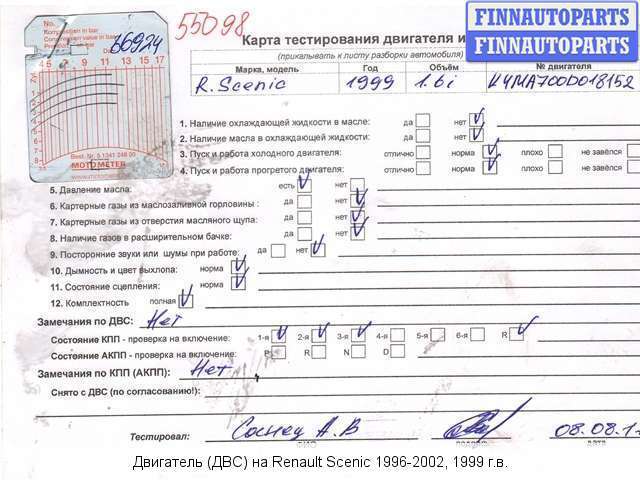 No.
Kompression in bar
Compression value in bar
66924
55098
4 5 8 11 14 17
Best. Nr. 5 1341 246 90
MOTOMETER
FINNAUTOPARTS
FINNAUTOPARTS
Карта тестирования двигателя и
(прикалывать к листу разборки автомобиля)
Марка, модель Год Объём № двигателя
R. Scenic 1999 1.6i K4MA700D018152
1. Наличие охлаждающей жидкости в масле: да нет
2. Наличие масла в охлаждающей жидкости: да нет
3. Пуск и работа холодного двигателя: отлично норма плохо не завёлся
4. Пуск и работа прогретого двигателя: отлично норма плохо не завёлся
5. Давление масла: есть нет
6. Картерные газы из маслозаливной горловины: да нет
7. Картерные газы из отверстия масляного щупа: да нет
8. Наличие газов в расширительном бачке: да нет
9. Посторонние звуки или шумы при работе: да нет
10. Дымность и цвет выхлопа: норма
11. Состояние сцепления: норма
12. Комплектность полная
Замечания по ДВС: Нет
Состояние КПП - проверка на включение: 1-я 2-я 3-я 4-я 5-я 6-я R
Состояние АКПП - проверка на включение: P R N D
Замечания по КПП (АКПП): Нет
Снято с ДВС (по согласованию!):
Тестировал: А.В 08.08.1
Двигатель (ДВС) на Renault Scenic 1996-2002, 1999 г.в.